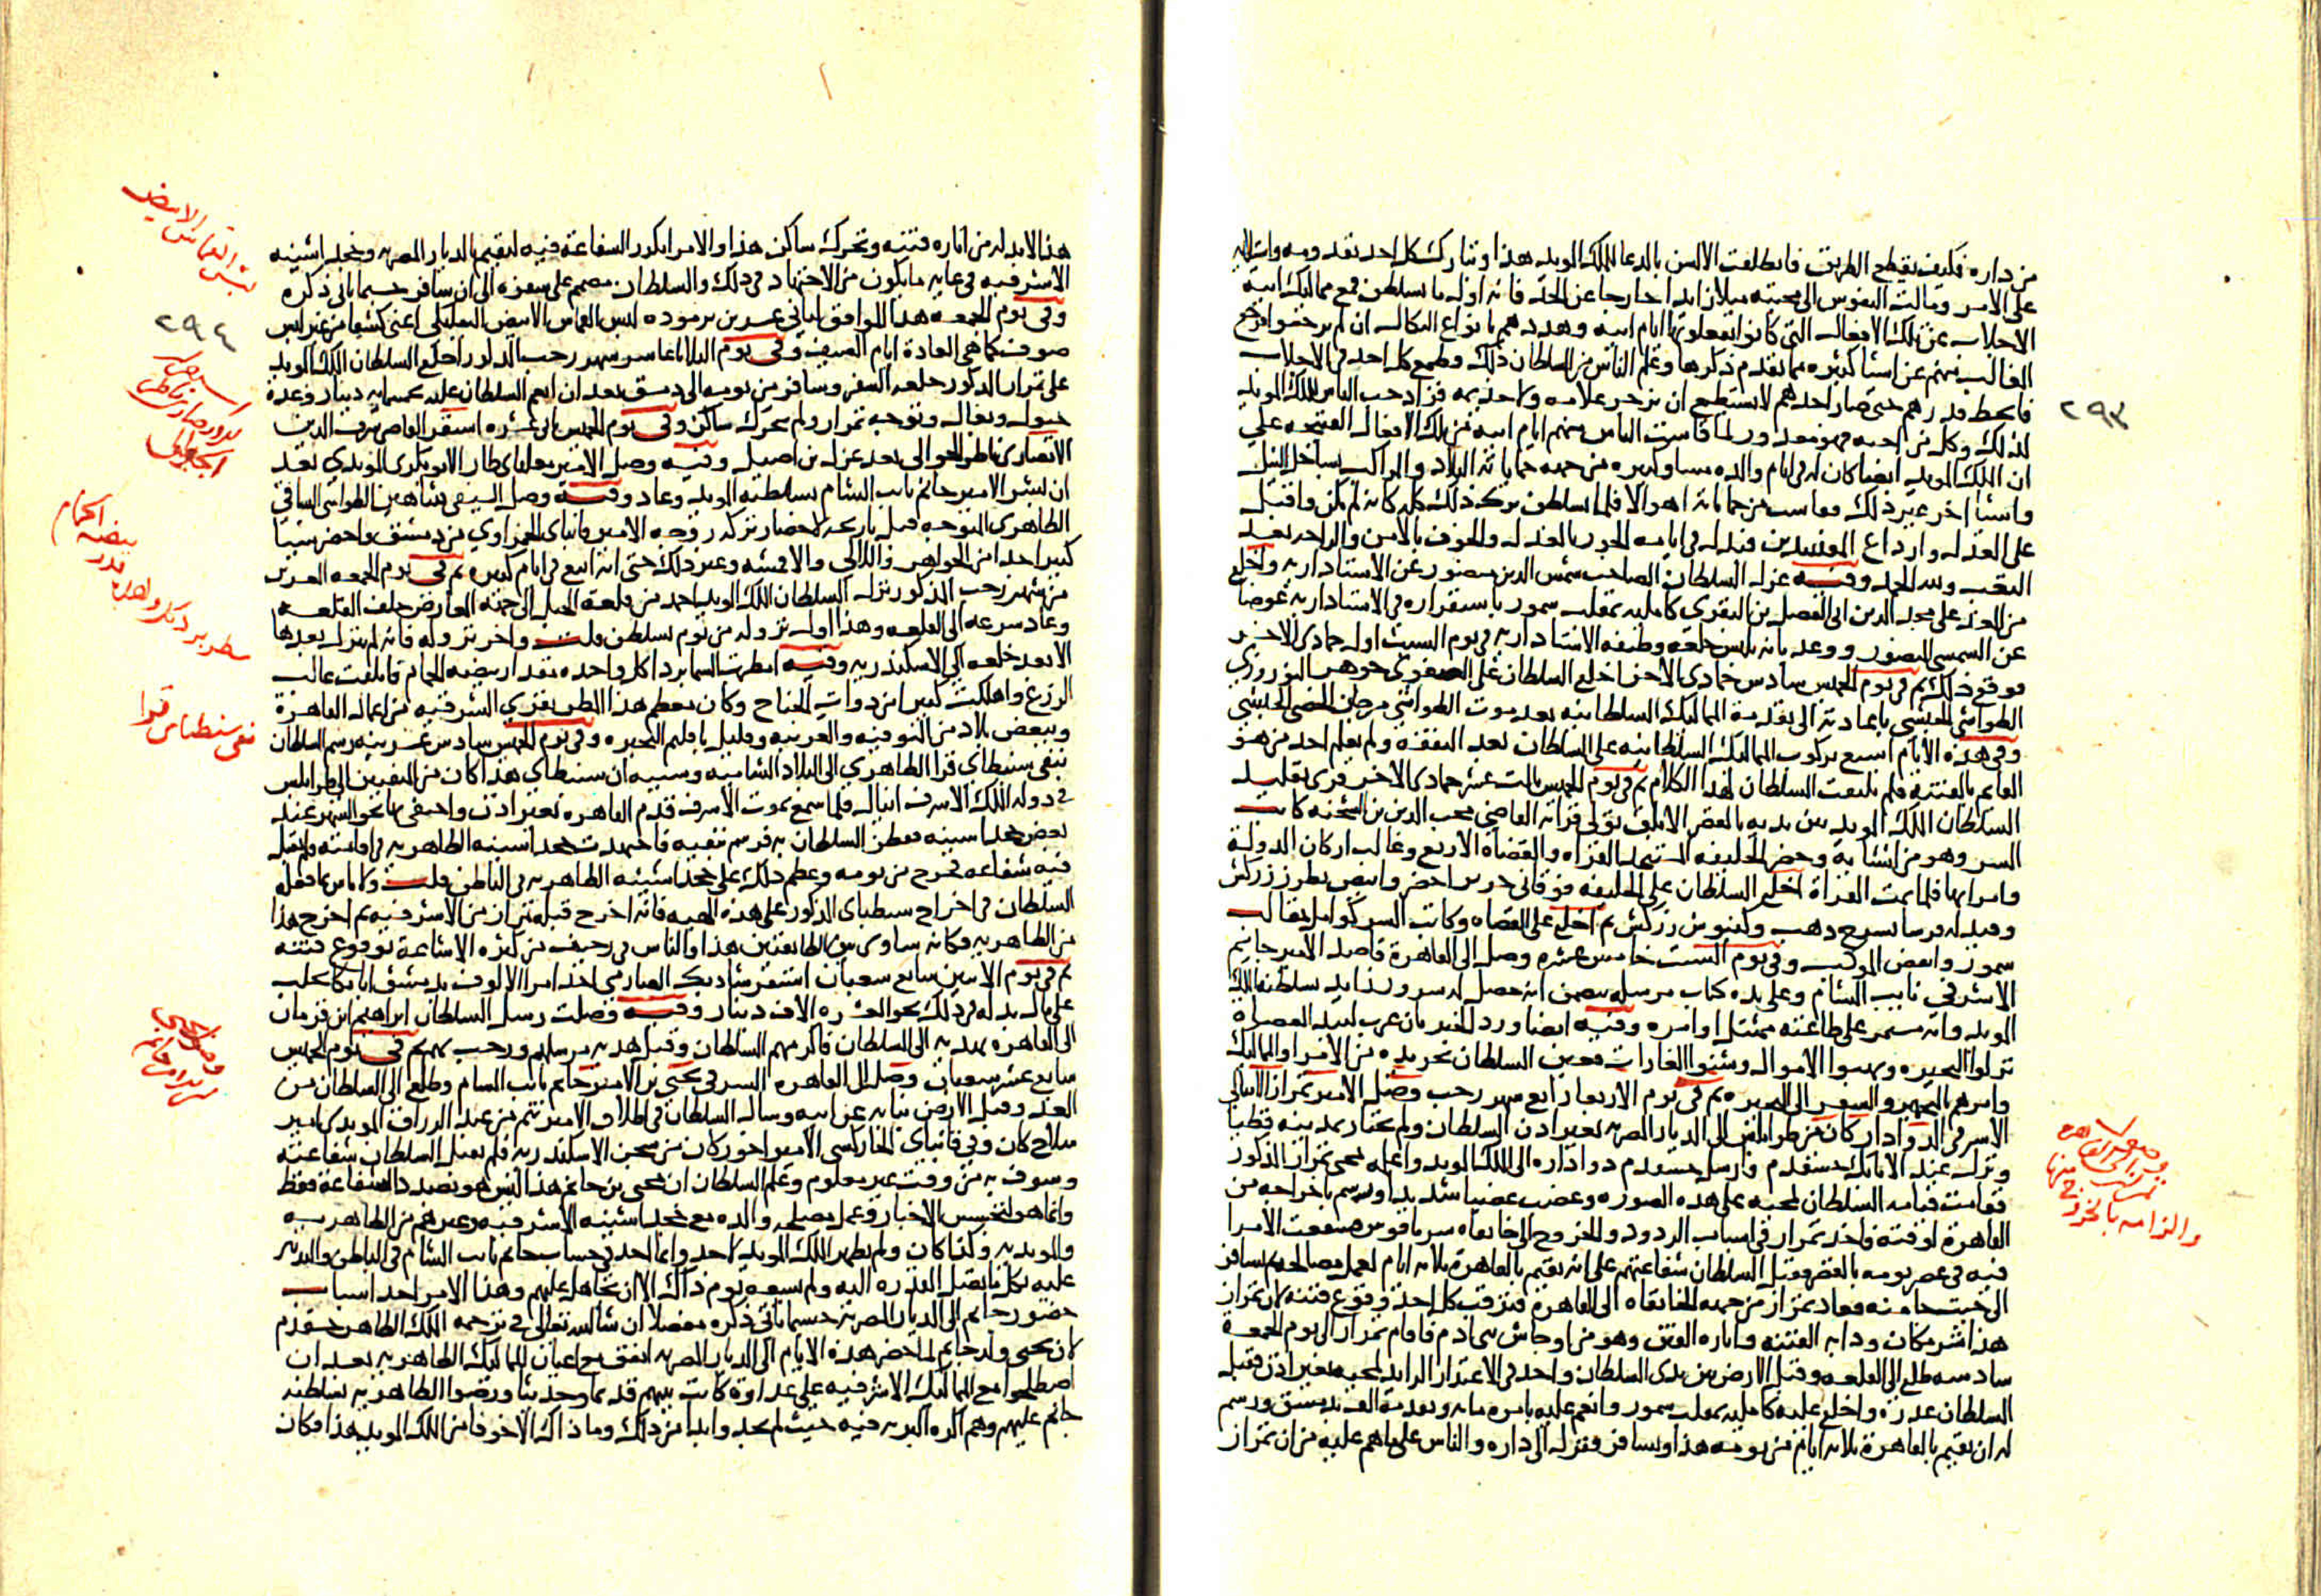 من داره فكيف يقطع الطريق فانطلقت الالسن بالدعا للملك المويد هذا وتشارك كل احد بقدومه واستلايه
على الامر ومالت النفوس الى محبته ميلا زايدا خارجا عن الحد فانه اول ما تسلطن قمع مماليك ابيه
الاجلاب عن تلك الافعال التى كانوا يفعلونها ايام ابيه وهددهم بانواع النكال ان لم يرجعوا فرجع
الغالب منهم عن اشيا كثيره مما تقدم ذكرها وعلم الناس من السلطان ذلك وطمع كل احد فى الاجلاب
فانحط قدرهم حتى صار احدهم لا يستطيع ان يزجر غلامه ولا خدمه فزاد حب الناس للملك المويد
لذلك وكل من احبه فهو معذور لما قاست الناس منهم ايام ابيه من تلك الافعال القبيحه على
ان الملك المويد ايضا كان له فى ايام والده مساو كثيره من جهه حماياته البلاد والمراكب بساحل النيل
واشيا اخر غير ذلك وقاست من حماياته اهوالا فلما تسلطن ترك ذلك كله كانه لم يكن واقبل
على العدل وارداع المفسدين فبدل فى ايامه الجور بالعدل والخوف بالامن والراحه بعد
التعب ولله الحمد وفيه عزل السلطان الصاحب شمس الدين منصور عن الاستاداريه واخلع
من الغد على مجد الدين ابى الفضل بن البقرى كامليه بمقلب سمور باستقراره فى الاستاداريه عوضا
عن الشمسى المنصور ووعد بانه يلبس خلعه وظيفه الاستاداريه فى يوم السبت اول جمادى الاخر
فوقع ذلك ثم فى يوم الخميس سادس جمادى الاخر اخلع السلطان على الصفوى جوهر النوروزى
الطواشى الحبشى باعادته الى تقدمة المماليك السلطانيه بعد موت الطواشى مرجان الحصنى الحبشى
وفى هذه الايام اشيع بركوب المماليك السلطانيه على السلطان بعد النفقه ولم يعلم احد من هو
القايم بالفتنه فلم يلتفت السلطان لهذا الكلام ثم فى يوم الخميس ثالث عشر جمادى الاخر قرى تقليد
السلطان الملك المويد بين يديه بالقصر الابلق تولى قراته القاضى محب الدين بن الشحنه كاتب
السر وهو من انشايه وحضر الخليفه المستنجد القراه والقضاه الاربع وغالب اركان الدولة
وامرايها فلما تمت القراة اخلع السلطان على الخليفه فوقانى حرير اخضر وابيض بطرز زركش
وقيد له فرسا بسرج ذهب وكنبوش زركش ثم اخلع على القضاه وكاتب السر كوامل بمقالب
سمور وانفض الموكب وفى يوم السبت خامس عشره وصل الى القاهرة قاصد الامير جانم
الاشرفى نايب الشام وعلى يده كتاب مرسله يتضمن انه حصل له سرور زايد بسلطنة الملك
المويد وانه مستمر على طاعته ممتثل اوامره وفيه ايضا ورد الخبر بان عرب لبيد العصاه
نزلوا البحيره ونهبوا الاموال وشنوا الغارات فعين السلطان تجريده من الامرا والمماليك
وامرهم بالتجهيز والسفر الى البحيره ثم فى يوم الاربعا رابع شهر رجب وصل الامير تمراز الاينالى
الاشرفى الدوادار كان من طرابلس الى الديار المصريه بغير اذن السلطان ولم يجتاز بمدينه قطيا
ونزل عند الاتابك خشقدم فارسل خشقدم دواداره الى الملك المويد واعلمه بمجى تمراز المذكور
فقامت قيامه السلطان لمجيه على هذه الصوره وغضب غضبا شديدا ورسم باخراجه من
القاهرة لوقته فاخذ تمراز فى اسباب الردود والخروج الى خانقاه سرياقوس فشفعت الامرا
فيه فى عصر يومه بالقصر فقبل السلطان شفاعتهم على انه يقيم بالقاهرة ثلاثه ايام لعمل مصالحه ثم يسافر
الى حيث جا منه فعاد تمراز من جهه الخانقاه الى القاهرة فترقب كل احد وقوع فتنه لان تمراز
هذا شر مكان ودابه الفتنه واثاره الفتن وهو من اوحاش بنى ادم فاقام تمراز الى يوم الجمعة
سادسه طلع الى القلعه وقبل الارض بين يدى السلطان واخذ فى الاعتذار الزايد لمجيه بغير اذن فقبل
السلطان عذره واخلع عليه كامليه بمقلب سمور وانعم عليه بامره مايه وتقدمة الف بدمشق ورسم
له ان يقيم بالقاهرة ثلاثه ايام من يومه هذا ويسافر فنزل الى داره والناس على ما هم عليه من ان تمراز
٢٩٣
وصول تمراز الى القاهرة
والزامه بالخروج منها
هذا لا بد له من اثاره فتنه وتحرك ساكن هذا والامرا تكرر الشفاعة فيه ليقيم بالديار المصريه وخجداشيته
الاشرفيه فى غايه ما يكون من الاجتهاد فى ذلك والسلطان مصمم على سفره الى ان سافر حسبما ياتى ذكره
وفى يوم الجمعه هذا الموافق لثانى عشرين برموده لبس القماش الابيض البعلبكى اعنى كشفا من غير لبس
صوف كما هى العادة ايام الصيف وفى يوم الثلاثا عاشر شهر رجب المذكور اخلع السلطان الملك المويد
على تمراز المذكور خلعه السفر وسافر من يومه الى دمشق بعد ان انعم السلطان عليه بخمسمايه دينار وعدة
خيول وبغال وتوجه تمراز ولم يتحرك ساكن وفى يوم الخميس ثانى عشره استقر القاضى شرف الدين
الانصارى ناظر الجوالى بعد عزل بن اصيل وفيه وصل الامير مغلباى طاز الابوبكرى المويدى بعد
ان بشر الامير جانم نايب الشام بسلطنه المويد وعاد وفيه وصل السيفى شاهين الطواشى الساقى
الظاهرى المتوجه قبل تاريخه لاحضار تركه زوجه الامير قانباى الحمزاوى من دمشق واحضر شيا
كثيرا جدا من الجواهر واللالى والاقمشه وغير ذلك حتى انه ابيع فى ايام كثيره ثم فى يوم الجمعه العشرين
من شهر رجب المذكور نزل السلطان الملك المويد احمد من قلعة الجبل الى جهه العارض خلف القلعه
وعاد بسرعه الى القلعه وهذا اول نزوله من يوم تسلطن قلت واخر نزوله فانه لم ينزل بعدها
الا بعد خلعه الى الاسكندريه وفيه امطرت السما بردا كل واحده مقدار بيضه الحمام فاتلفت غالب
الزرع واهلكت كثيرا من ذوات الجناح وكان معظم هذا المطر بقرى الشرقيه من اعمال القاهرة
وببعض بلاد من المنوفيه والغربيه وقليل باقليم البحيره وفى يوم الخميس سادس عشرينه رسم السلطان
بنفى سنطباى قرا الظاهرى الى البلاد الشاميه وسببه ان سنطباى هذا كان من المنفيين الى طرابلس
فى دوله الملك الاشرف اينال فلما سمع بموت الاشرف قدم القاهره بغير اذن واختفى بها نحو الشهر عند
بعض خجداشيته ففطن السلطان به فرسم بنفيه فاجتهدت خجداشيته الظاهريه فى اقامته ولم تقبل
فيه شفاعه فخرج من يومه وعظم ذلك على خجداشيته الظاهريه فى الباطن قلت ولا باس بما فعله
السلطان فى اخراج سنطباى المذكور على هذه الهيه فانه اخرج قبله تمراز من الاشرفيه ثم اخرج هذا
من الظاهريه فكانه ساوى بين الطايفتين هذا والناس فى رجيف من كثره الاشاعة بوقوع فتنه
ثم فى يوم الاثنين سابع شعبان استقر شادبك الصارمى احد امرا الالوف بدمشق اتابكا بحلب
على مال بذله فى ذلك نحو العشره الاف دينار وفيه وصلت رسل السلطان ابراهيم بن قرمان
الى القاهره بهديه الى السلطان فاكرمهم السلطان وقبل هديه مرسلهم ورحب بهم ثم فى يوم الخميس
سابع عشر شعبان وصل الى القاهره الشرفى يحيى بن الامير جانم نايب الشام وطلع الى السلطان من
الغد وقبل الارض نيابه عن ابيه وسال السلطان فى اطلاق الامير تنم من عبد الرزاق المويدى امير
سلاح كان وفى قانباى الجاركسى الامير اخور كان من سجن الاسكندريه فلم يقبل السلطان شفاعته
وسوف به من وقت غير معلوم وعلم السلطان ان يحيى بن جانم هذا ليس هو بصدد الشفاعة فقط
وانما هو لتجسس الاخبار وعمل مصلحه والده مع خجداشيته الاشرفيه وغيرهم من الظاهريه
والمويديه وكذا كان ولم يظهر الملك المويد لاحد وانما اخذ فى حساب جانم نايب الشام فى الباطن والتدبير
عليه بكل ما تصل القدره اليه ولم يسعه يوم ذاك الا ان تجاهل عليهم وهذا الامر احد اسباب
حضور جانم الى الديار المصريه حسبما ياتى ذكره مفصلا ان شا الله تعالى فى ترجمه الملك الظاهر خشقدم
لان يحيى ولد جانم لما حضر هذه الايام الى الديار المصريه اتفق مع اعيان المماليك الظاهريه بعد ان
اصطلحوا مع المماليك الاشرفيه على عداوة كانت بينهم قديما وحديثا ورضوا الظاهريه بسلطنه
جانم عليهم وهم اكره البريه فيه حيث لم يجدوا بدا من ذلك وما ذاك الا خوفا من الملك المويد هذا فكان
لبس القماش الابيض
٢٩٤
بيضه الحمام
نفى سنطباى قرا